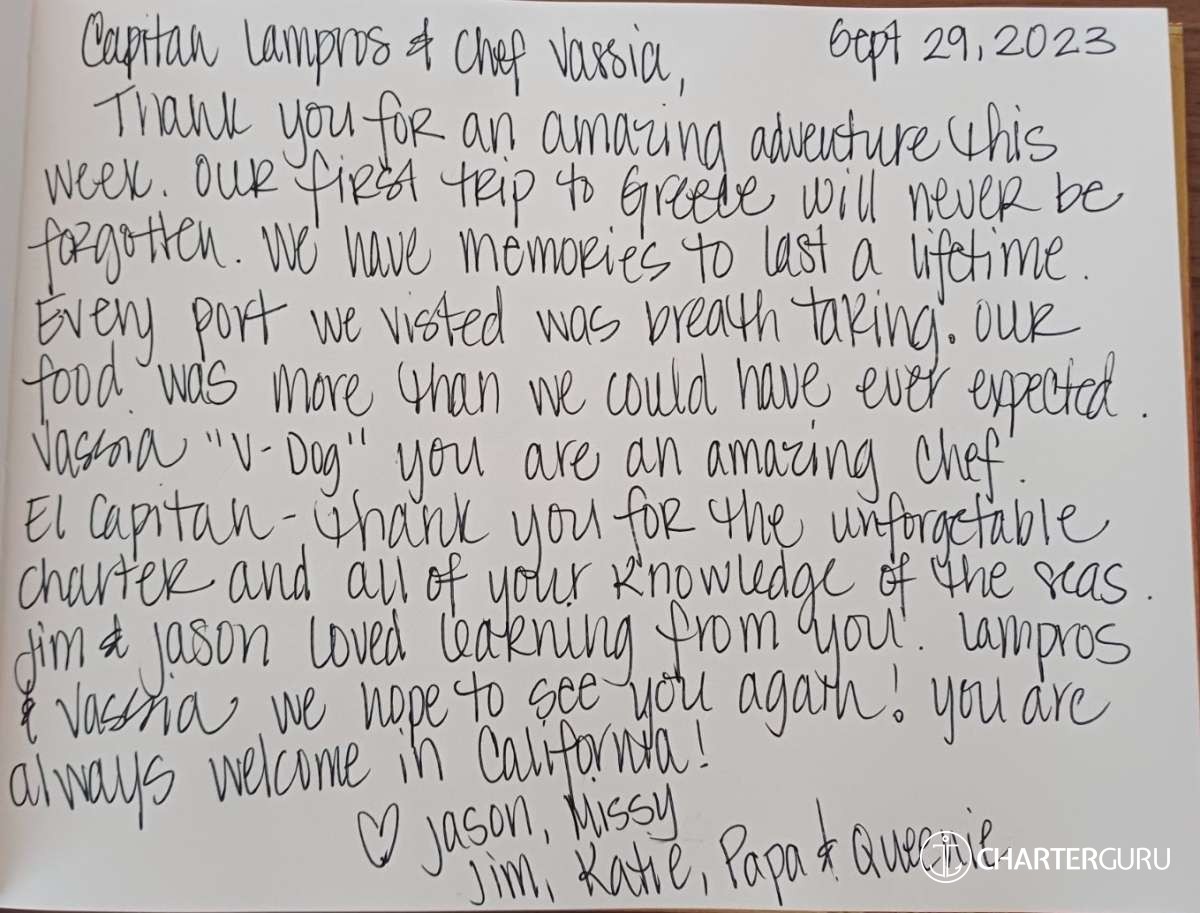 Capitan Lampros & Chef Vassia,
Sept 29, 2023
Thank you for an amazing adventure this
week. Our first trip to Greece will never be
forgotten. We have memories to last a lifetime.
Every port we visted was breath taking. Our
food was more than we could have ever expected.
Vassia "V-Dog" you are an amazing chef.
El Capitan - thank you for the unforgetable
charter and all of your knowledge of the seas.
Jim & Jason loved learning from you. Lampros
& Vassia we hope to see you again! You are
always welcome in California!
♡ Jason, Missy
Jim, Katie, Papa & Queenie
CHARTERGURU